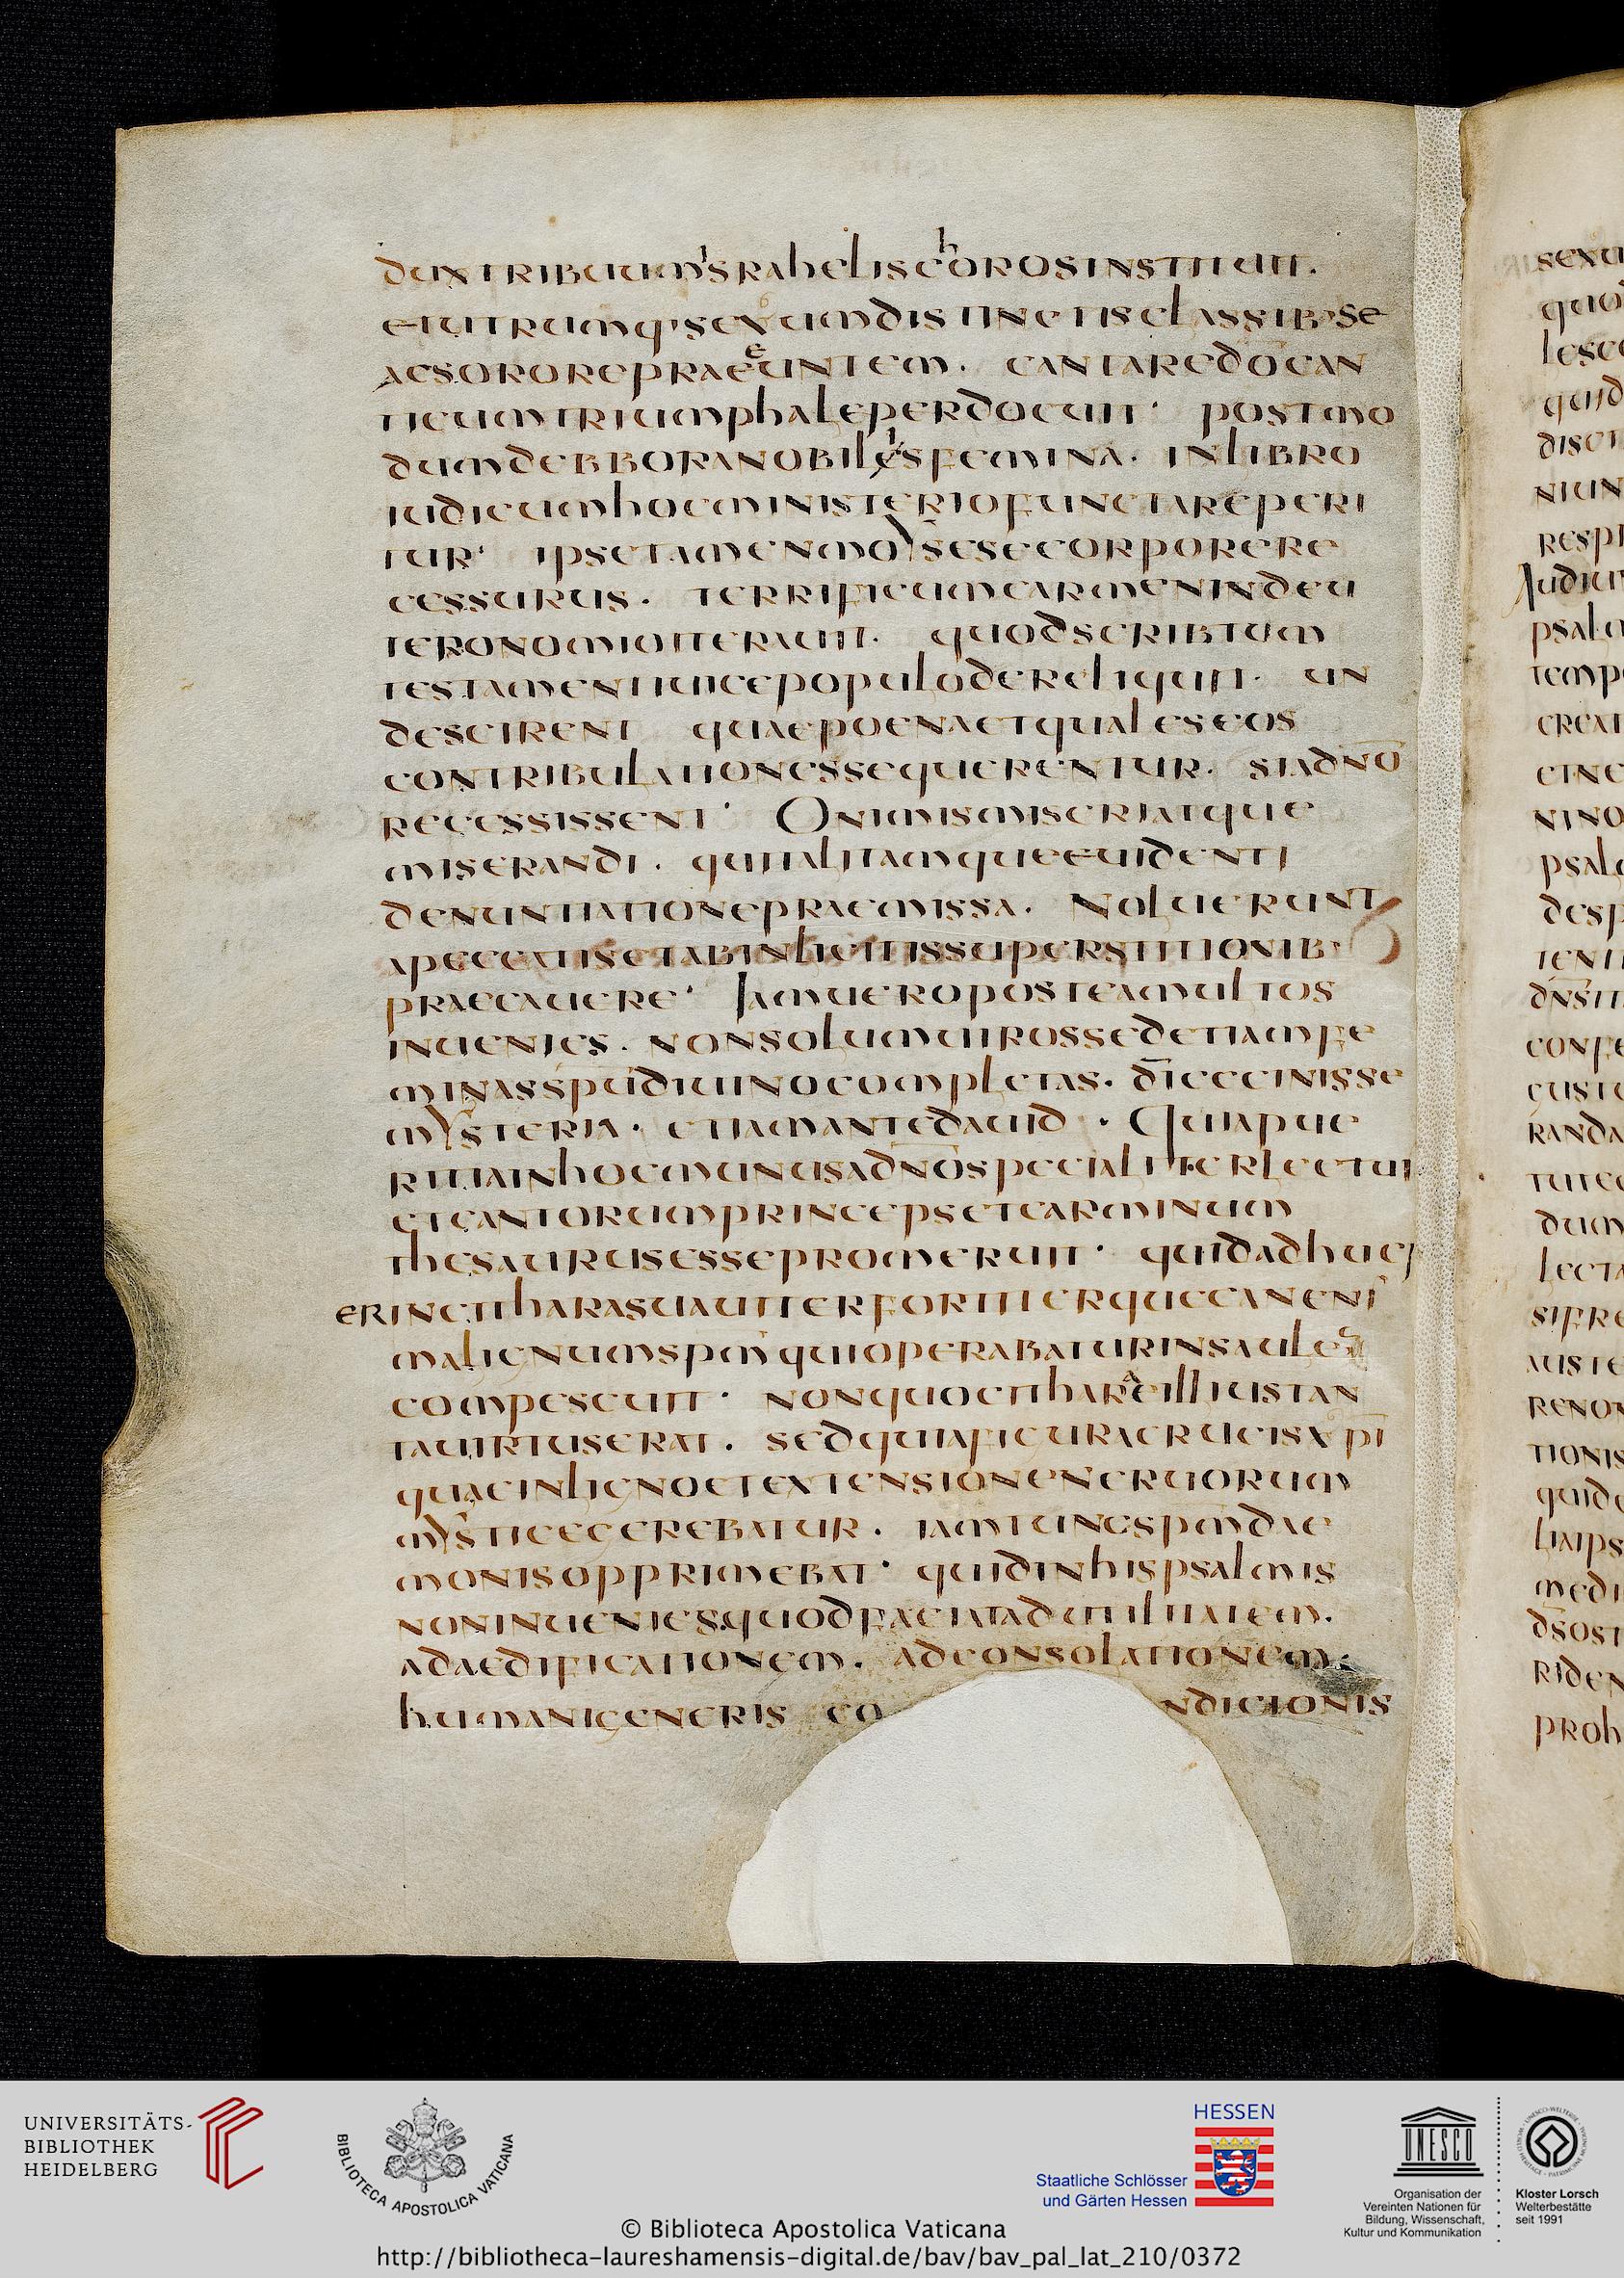 dux tribuum israhelis choros instituit.
et utrumq· sexum distinctis classib· se
ac sorore praeeuntem. cantare dō can
ticum triumphale perdocuit· post mo
dum debbora nobilis femina. in libro
iudicum hoc ministerio functa reperi
tur· ipse tamen moyses e corpore re
cessurus. terrificum carmen in deu
teronomio iterauit. quod scribtum
testamenti uice populo dereliquit· un
de scirent quae poena et quales eos
contribulationes sequerentur. si a dnō
recessissent· O nimis miseri atque
miserandi. qui tali tamque euidenti
denuntiatione praemissa. Noluerunt
a peccatis et ab inlicitis superstitionib·
praecauere· Iam uero postea multos
inuenies. non solum uiros sed etiam fe
minas spū diuino completas. dī cecinisse
mysteria. etiam ante dauid. Qui a pue
ritia in hoc munus a dnō specialiter lectus
et cantorum princeps et carminum
thesaurus esse promeruit· qui adhuc p
er in cithara suauiter fortiterque canens
malignum spm̄ qui operabatur in saule
compescuit· non quo citharae illius tan
ta uirtus erat. sed quia figura crucis xpī
quae in ligno et extensione neruorum
mystice gerebatur. iam tunc spm̄ dae
monis opprimebat· quid in his psalmis
non inuenies. quod faciat ad utilitatem.
ad aedificationem. ad consolationem.
humani generis co ndicionis
UNIVERSITÄTS-
BIBLIOTHEK
HEIDELBERG
BIBLIOTECA APOSTOLICA VATICANA
HESSEN
Staatliche Schlösser
und Gärten Hessen
UNESCO
Organisation der
Vereinten Nationen für
Bildung, Wissenschaft,
Kultur und Kommunikation
Kloster Lorsch
Welterbestätte
seit 1991
© Biblioteca Apostolica Vaticana
http://bibliotheca-laureshamensis-digital.de/bav/bav_pal_lat_210/0372